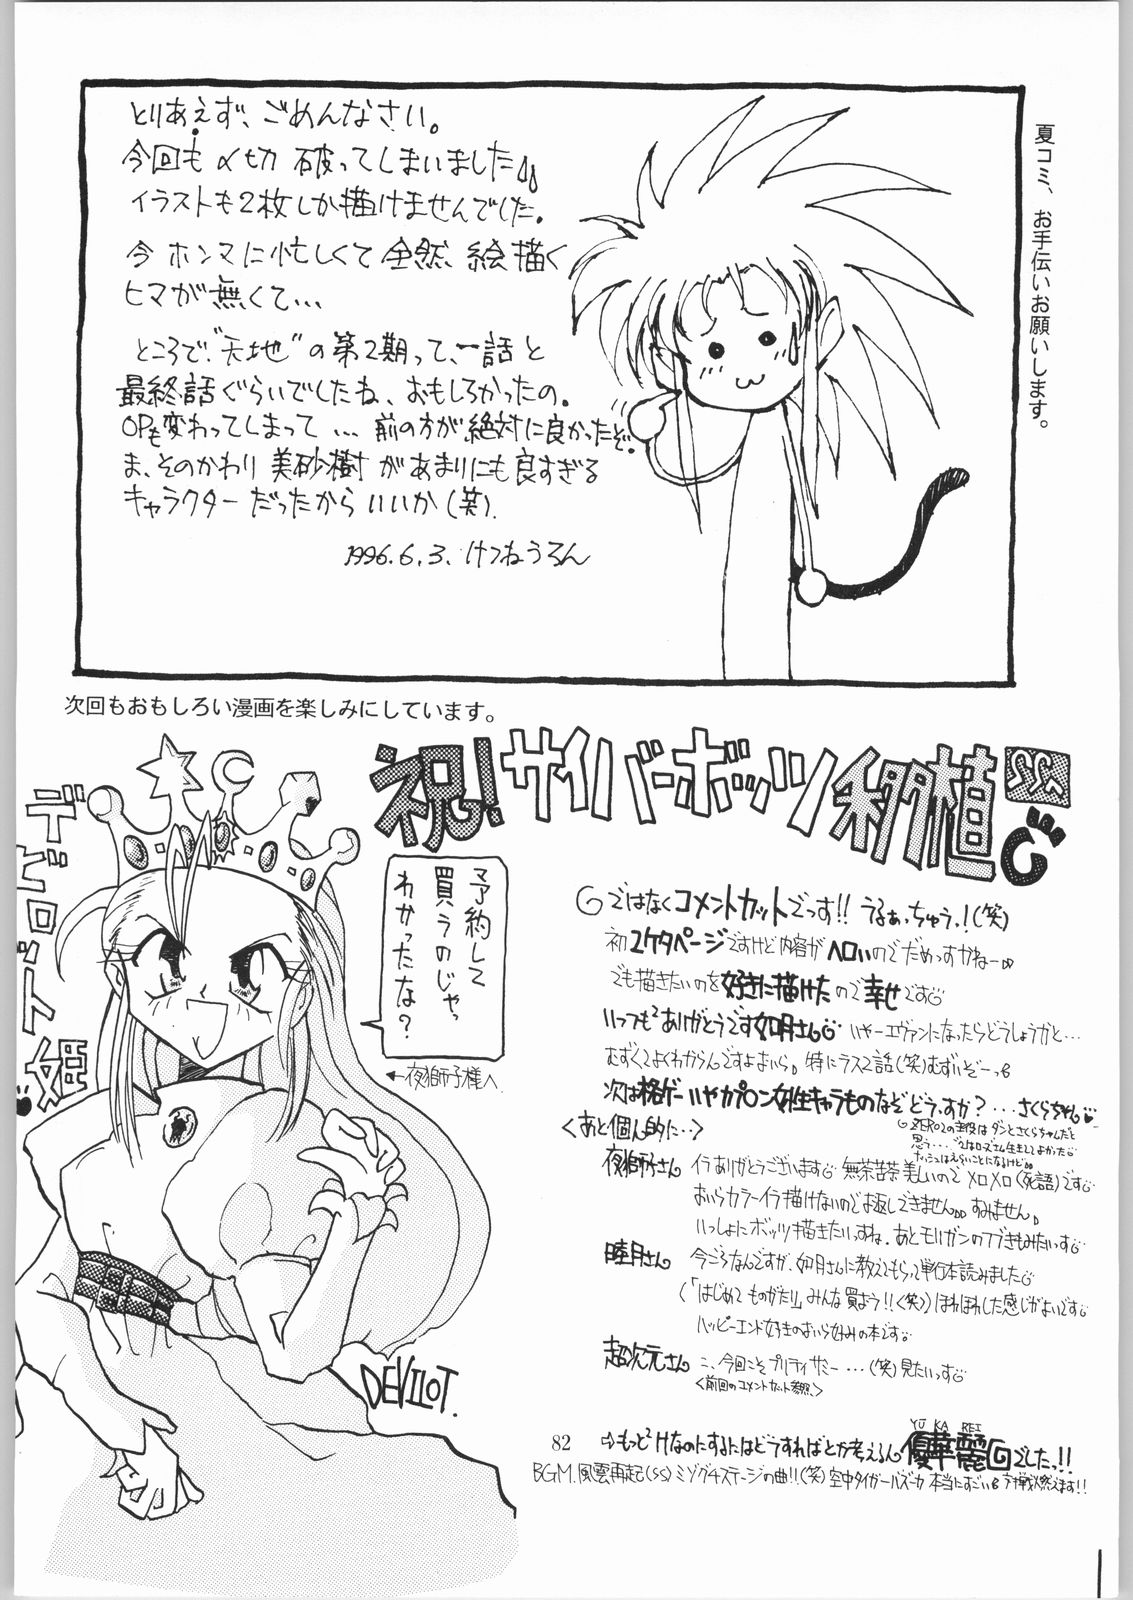 とりあえず、ごめんなさい。
今回も〆切 破ってしまいました
イラストも2枚しか描けませんでした。
今 ホンマに忙しくて 全然、絵描く
ヒマが無くて…
ところで、"天地"の第2期って、一話と
最終話ぐらいでしたね、おもしろかったの。
OPも変わってしまって … 前の方が絶対に良かったぞ。
ま、そのかわり 美砂樹があまりにも良すぎる
キャラクターだったからいいか(笑).
1996.6.3. けつねうろん
夏コミ、お手伝いお願いします。
次回もおもしろい漫画を楽しみにしています。
祝!サイバーボッツ移植
SS
デビロット姫
予約して
買うのじゃっ
わかったな?
←夜獅子様へ
DEVILOT.
ではなくコメントカットでっす!! うるぁっちゅう!(笑)
初2ケタページですけど内容がヘロいのでだめっすかねー
でも描きたいのを好きに描けたので幸せです
いつもありがとうです如月さん いやーエヴァンになったらどうしようかと…
むずくてよくわからんですよおいら。特にラス2話(笑)むずいぞーっ
次は格ゲーいやカプコン女性キャラものなぞどうっすか?…さくらちゃん
ZERO2の主役はダンとさくらちゃんだと
思う....
<あと個人的に…>
夜獅子さん イラありがとうございます 無茶苦茶美しいのでメロメロ(死語)です
おいらカラーイラ描けないのでお返しできません すみません
いっしょにボッツ描きたいっすね. あとモリガンの
睦月さん 今ごろなんですが、如月さんに教えてもらって単行本読みました
(「はじめてものがたり」みんな買よう!!(笑))ほわほわした感じがよいです
ハッピーエンド好きのおいら好みの本です
超次元さん こ、今回こそプリティサミー…(笑)見たいっす
<前回のコメントカット参照>
82
⇨もっとHなのにするにはどうすればとか考えるん
YU KA REI
優華麗
でしたっ!!
BGM. 風雲再起(SS)ミヅグチステージの曲!!(笑) 空中タイガーバズーカ 本当にすごい 対戦燃えます!!